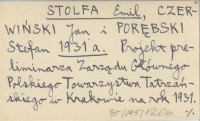 STOLFA Emil, CZER-
WIŃSKI Jan i PORĘBSKI
Stefan 1931 a. Projekt pre-
liminarza Zarządu Głównego
Polskiego Towarzystwa Tatrzań-
skiego w Krakowie na rok 1931.